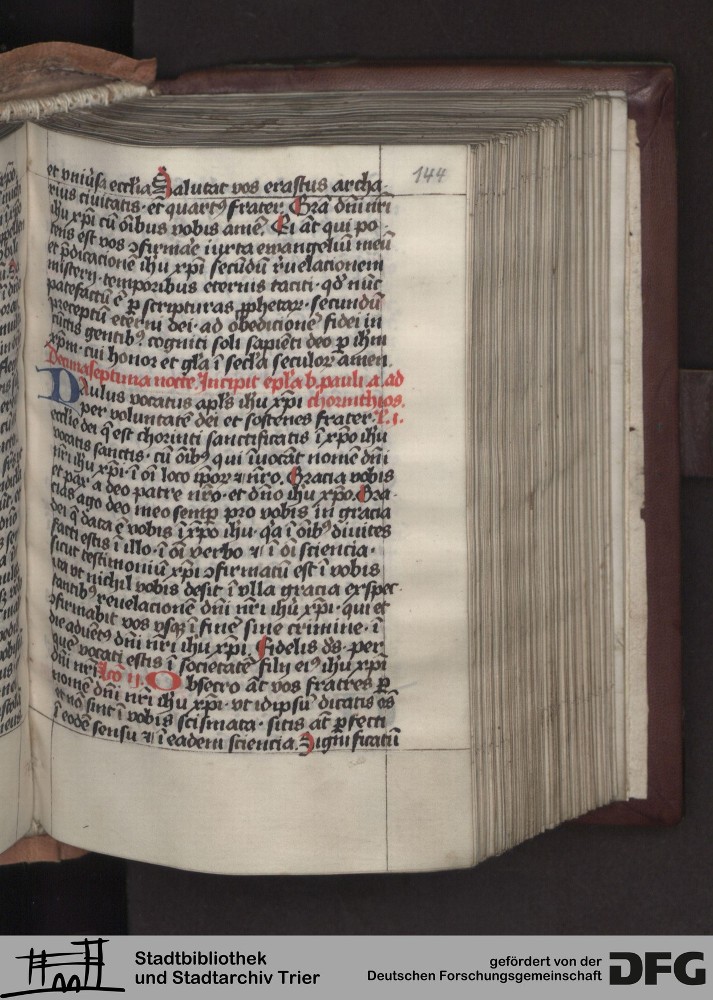 144
et vniu̕sa ecclīa Salutat vos erastus archa
rius ciuitatis · et quartꝯ frater. Grā dn̄i nr̄i
ihū xp̄i cū oībus vobis amē. Ei aūt qui po
tens est vos ꝯfirmar̄e iuxta ewangeliū meū
et p̄dicacionē ihū xp̄i secūdū reuelacionem
misterij · temporibus eternis taciti · qd̄ nūc
patefactū ē ꝑ scripturas ꝓphetaꝝ · secundū
preceptū eterni dei · ad obedicionē fidei in
cūctis gentibꝯ cogniti soli sapiēti deo ꝑ ihm̄
xp̄m · cui honor et glīa ī secl̄a seculoꝝ amen.
Decimaseptima nocte. Incipit ep̄la b. pauli a. ad
Paulus vocatus apl̄s ihū xp̄i chorinthios.
per voluntatē dei et sostenes frater · L. i.
eccl̄ie dei q̄ est chorinti sanctificatis ī xp̄o ihū
vocatis sanctis · cū oībꝯ qui īuocāt nomē dn̄i
nr̄i ihū xp̄i · ī oī loco ip̄oꝝ ⁊ nr̄o. Gracia vobis
et pax a deo patre nr̄o · et dn̄o ihū xp̄o. Gra
cias ago deo meo semꝑ pro vobis in gracia
dei q̄ data ē vobis ī xp̄o ihū · qīa ī oībꝯ diuites
facti estis ī illo · ī oī verbo ⁊ ī oī sciencia ·
sicut testimoniū xp̄i ꝯfirmatū est ī vobis
ita vt nichil vobis desit ī vlla gracia exspec
tantibꝯ reuelacionē dn̄i nr̄i ihū xp̄i · qui et
ꝯfirmabit vos vsqꝫ ī finē sine crimine · ī
die aduētꝯ dn̄i nr̄i ihū xp̄i. Fidelis ds̄ · per
quē vocati estis ī societatē filij eiꝯ ihū xp̄i
dn̄i nr̄i lcō ij. Obsecro aūt vos fratres ꝑ
nomē dn̄i nr̄i ihū xp̄i · vt idipsū dicatis oēs
et nō sint ī vobis scismata · sitis aūt ꝑfecti
ī eodē sensu ⁊ ī eadem sciencia. Significatū
Stadtbibliothek
und Stadtarchiv Trier
gefördert von der
Deutschen Forschungsgemeinschaft
DFG